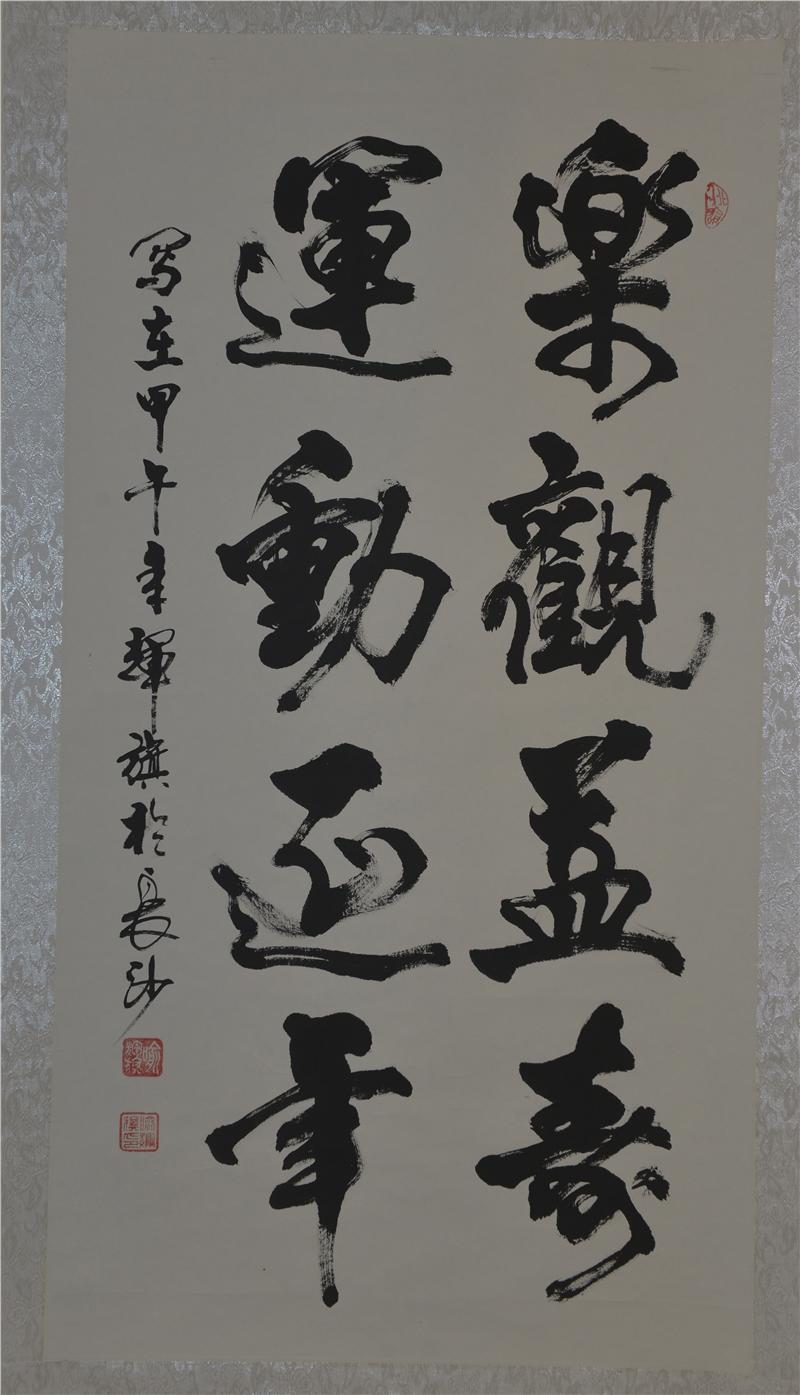 樂觀益壽
運動延年
寫在甲午年輝旗於長沙